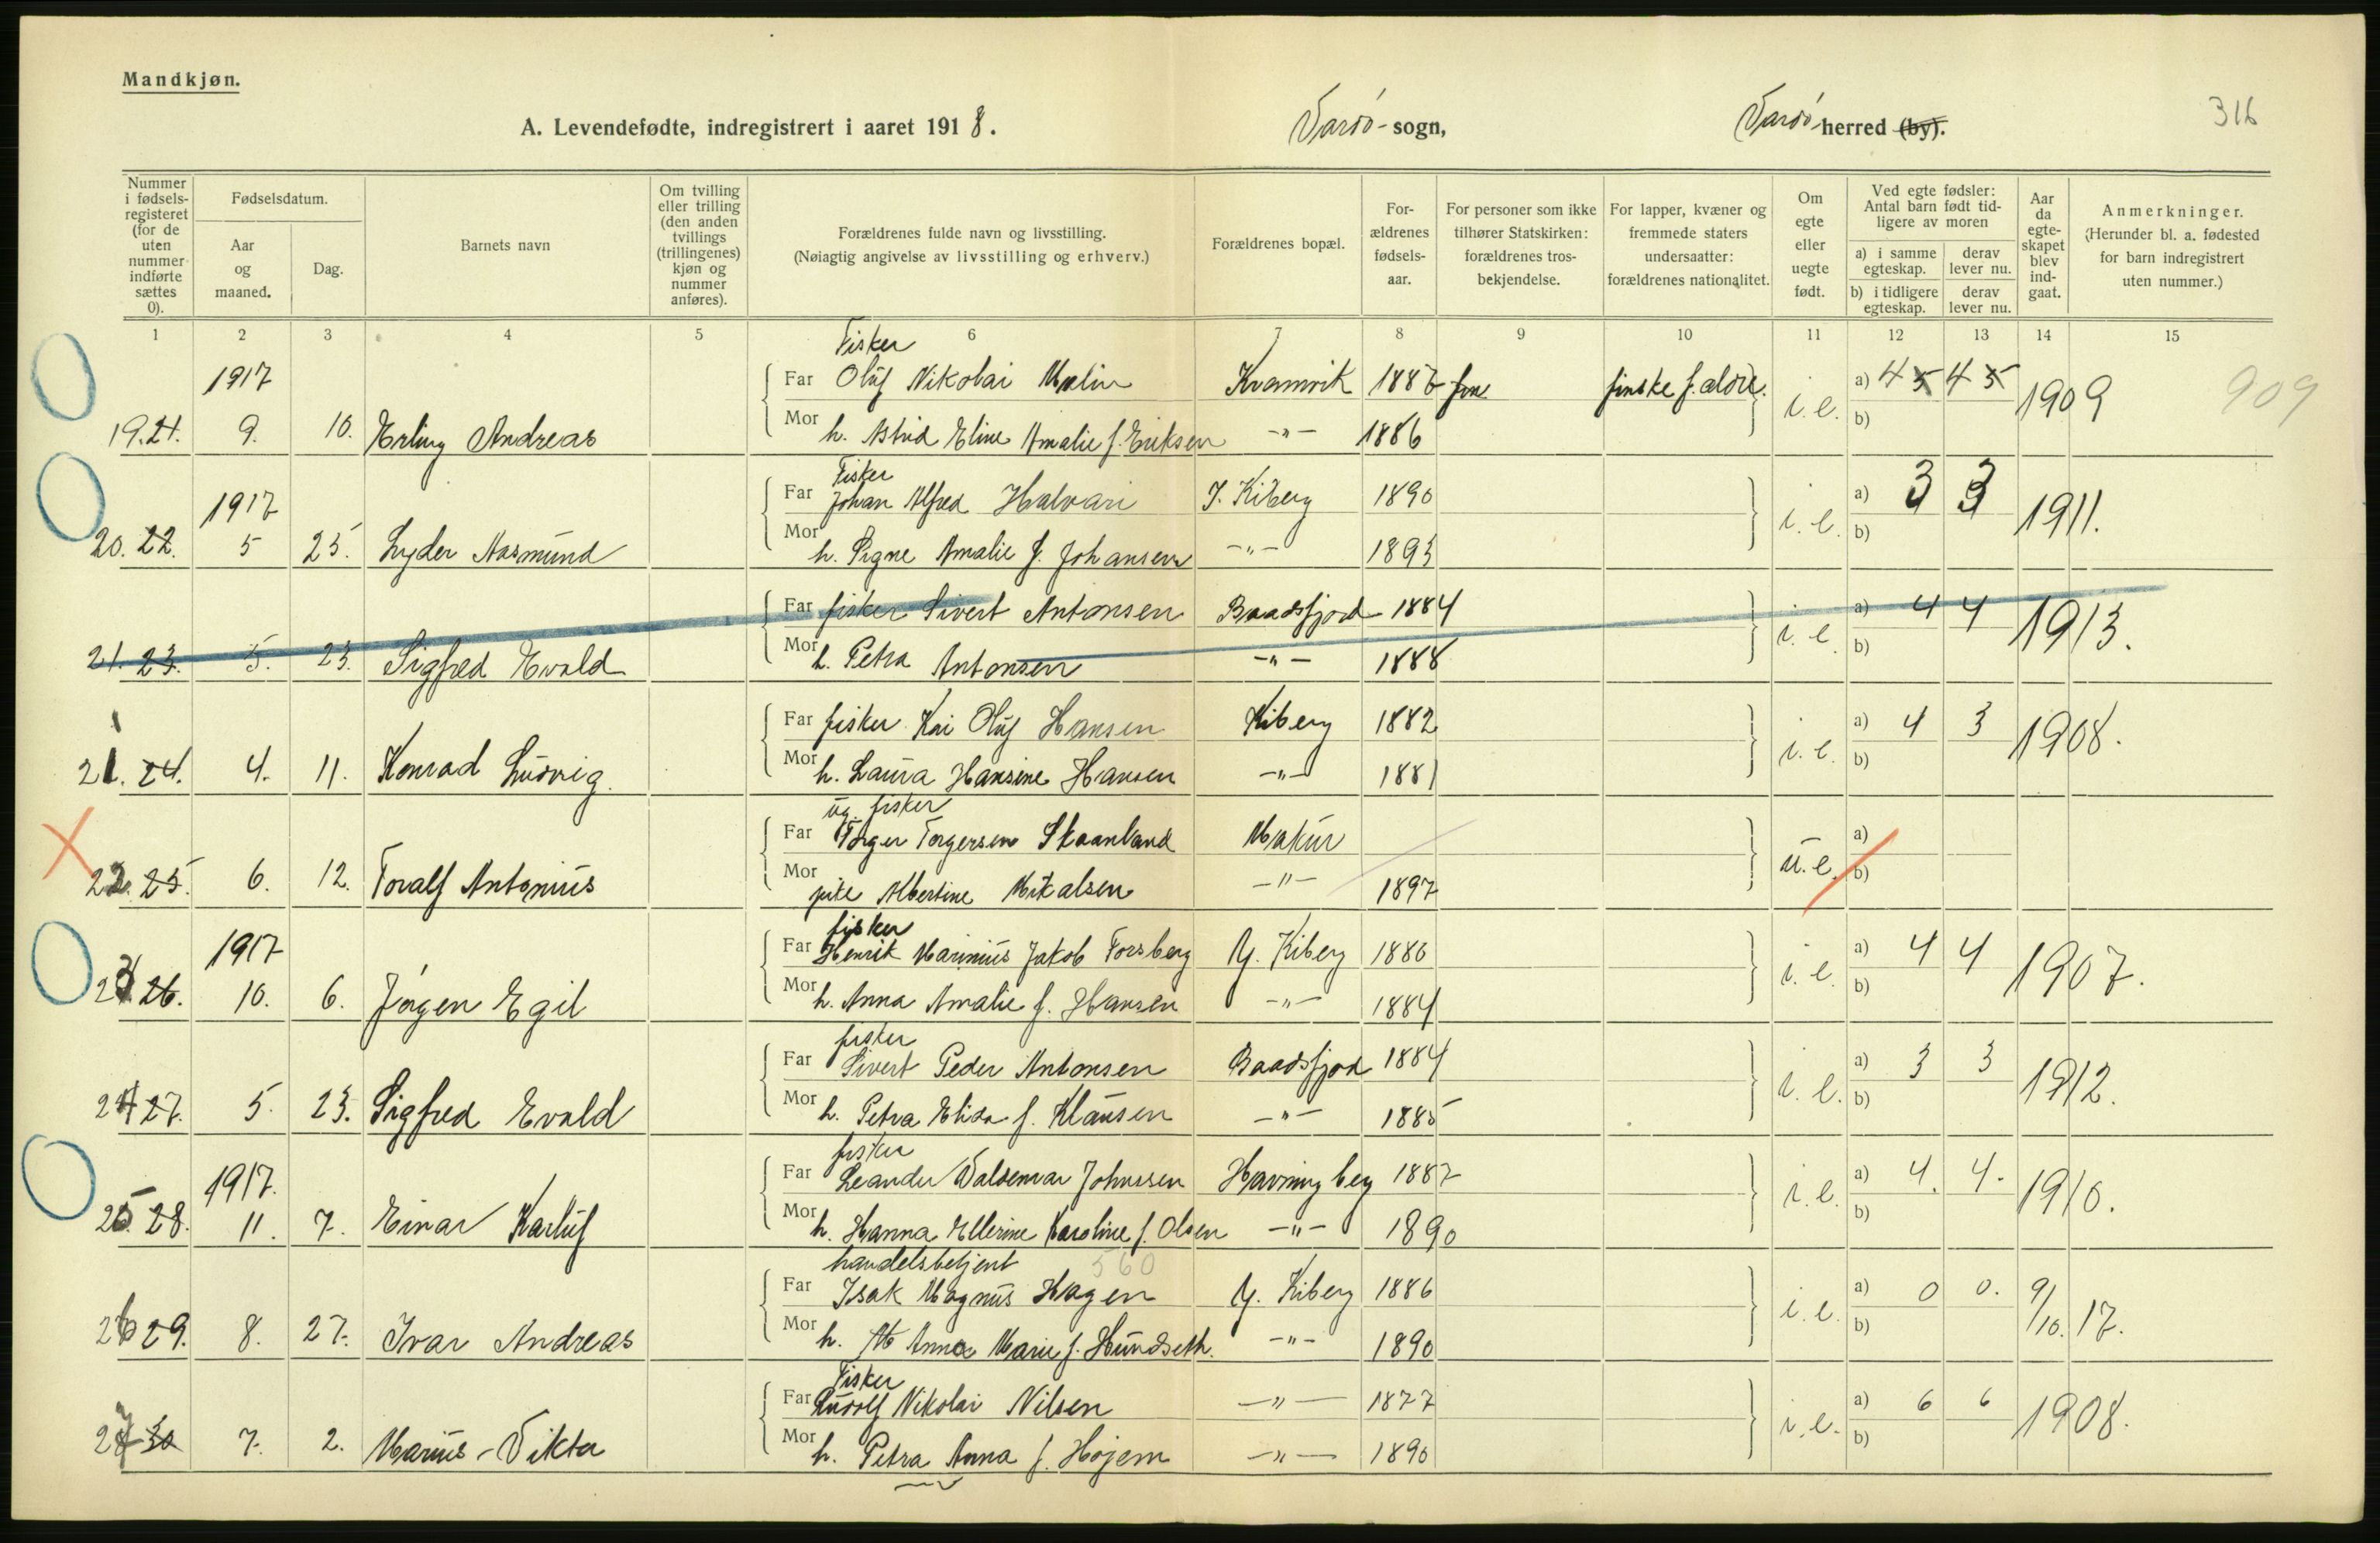 Mandkjøn.
316
A. Levendefødte, indregistrert i aaret 1918. Vardø- sogn, Vardø herred (by).
Nummer i fødsels-registeret (for de uten nummer indførte sættes 0).
Fødselsdatum.
Aar og maaned.
Dag.
Barnets navn
Om tvilling eller trilling (den anden tvillings (trillingenes) kjøn og nummer anføres).
Forældrenes fulde navn og livsstilling.
(Nøiagtig angivelse av livsstilling og erhverv.)
Forældrenes bopæl.
For-ældrenes fødsels-aar.
For personer som ikke tilhører Statskirken: forældrenes tros-bekjendelse.
For lapper, kvæner og fremmede staters undersaatter: forældrenes nationalitet.
Om egte eller uegte født.
Ved egte fødsler: Antal barn født tid-ligere av moren
a) i samme egteskap. derav lever nu.
b) i tidligere egteskap. derav lever nu.
Aar da egte-skapet blev ind-gaat.
Anmerkninger.
(Herunder bl. a. fødested for barn indregistrert uten nummer.)
1 2 3 4 5 6 7 8 9 10 11 12 13 14 15
Fisker
1917 Far Oluf Nikolai Malin Kramvik 1887 finske f. ældre. a) 4 5 4 5 1909 909
19. 21. 9. 10. Erling Andreas Mor h. Astrid Eline Amalie f. Eriksen -"- 1886 i.e. b)
Fisker
1917 Far Johan Alfred Halvari I. Kiberg 1890 a) 3 3 1911.
20. 22. 5 25. Lyder Aasmund Mor h. Signe Amalie f. Johansen -"- 1893 i.e. b)
Far fisker Sivert Antonsen Baadsfjord 1884 a) 4 4 1913.
21. 23. 5. 23. Sigfred Evald Mor h. Petra Antonsen -"- 1888 i.e. b)
Far fisker Kai Oluf Hansen Kiberg 1882 a) 4 3 1908.
21. 24. 4. 11. Konrad Ludvig. Mor h. Laura Hansine Hansen -"- 1881 i.e. b)
ug. fisker
Far Torger Torgersen Skaanland Makur a)
22. 25. 6. 12. Toralf Antonius Mor pike Albertine Mikalsen -"- 1897 u.e. b)
fisker
1917 Far Henrik Marinius Jakob Forsberg Y. Kiberg 1880 a) 4 4 1907.
23 26. 10. 6. Jørgen Egil Mor h. Anna Amalie f. Hansen -"- 1884 i.e. b)
fisker
Far Sivert Peder Antonsen Baadsfjord 1884 a) 3 3 1912.
24 27. 5. 23. Sigfred Evald Mor h. Petra Elida f. Klausen -"- 1885 i.e. b)
fisker
1917. Far Leander Valdemar Johnsen Havningberg 1887 a) 4. 4. 1910.
25. 28. 11. 7. Einar Karluf Mor h. Hanna Ellerine Karoline f. Olsen -"- 1890 i.e. b)
handelsbetjent 560
Far Isak Magnus Hagen Y. Kiberg 1886 a) 0 0. 9/10. 17.
26 29. 8. 27. Ivar Andreas Mor h. Anna Marie f. Hundseth. -"- 1890 i.e. b)
Fisker
Far Ludolf Nikolai Nilsen -"- 1877 a) 6 6 1908.
27 30 7. 2. Marius - Vikta Mor h. Petra Anna f. Højem -"- 1890 i.e. b)